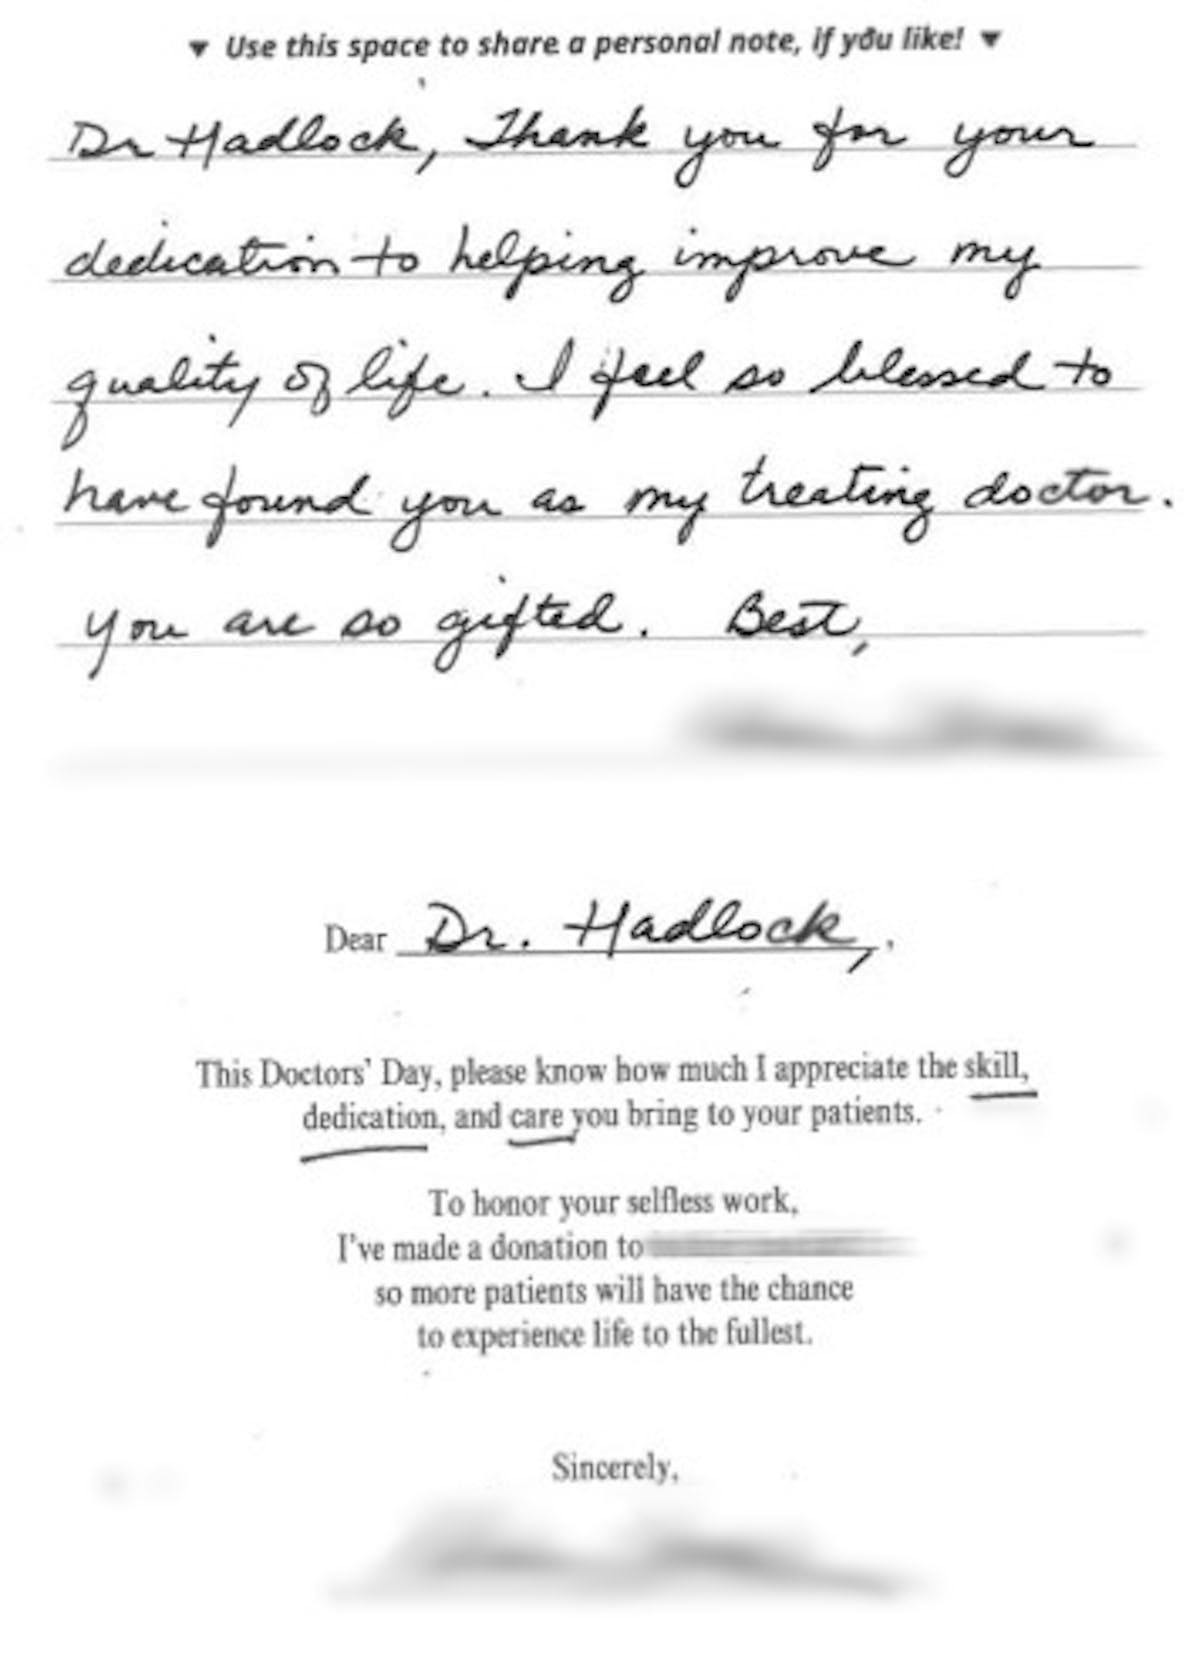 ▼ Use this space to share a personal note, if you like! ▼
Dr Hadlock, Thank you for your
dedication to helping improve my
quality of life. I feel so blessed to
have found you as my treating doctor.
you are so gifted. Best,
Dear Dr. Hadlock, ,
This Doctors' Day, please know how much I appreciate the skill,
dedication, and care you bring to your patients.
To honor your selfless work,
I've made a donation to
so more patients will have the chance
to experience life to the fullest.
Sincerely,